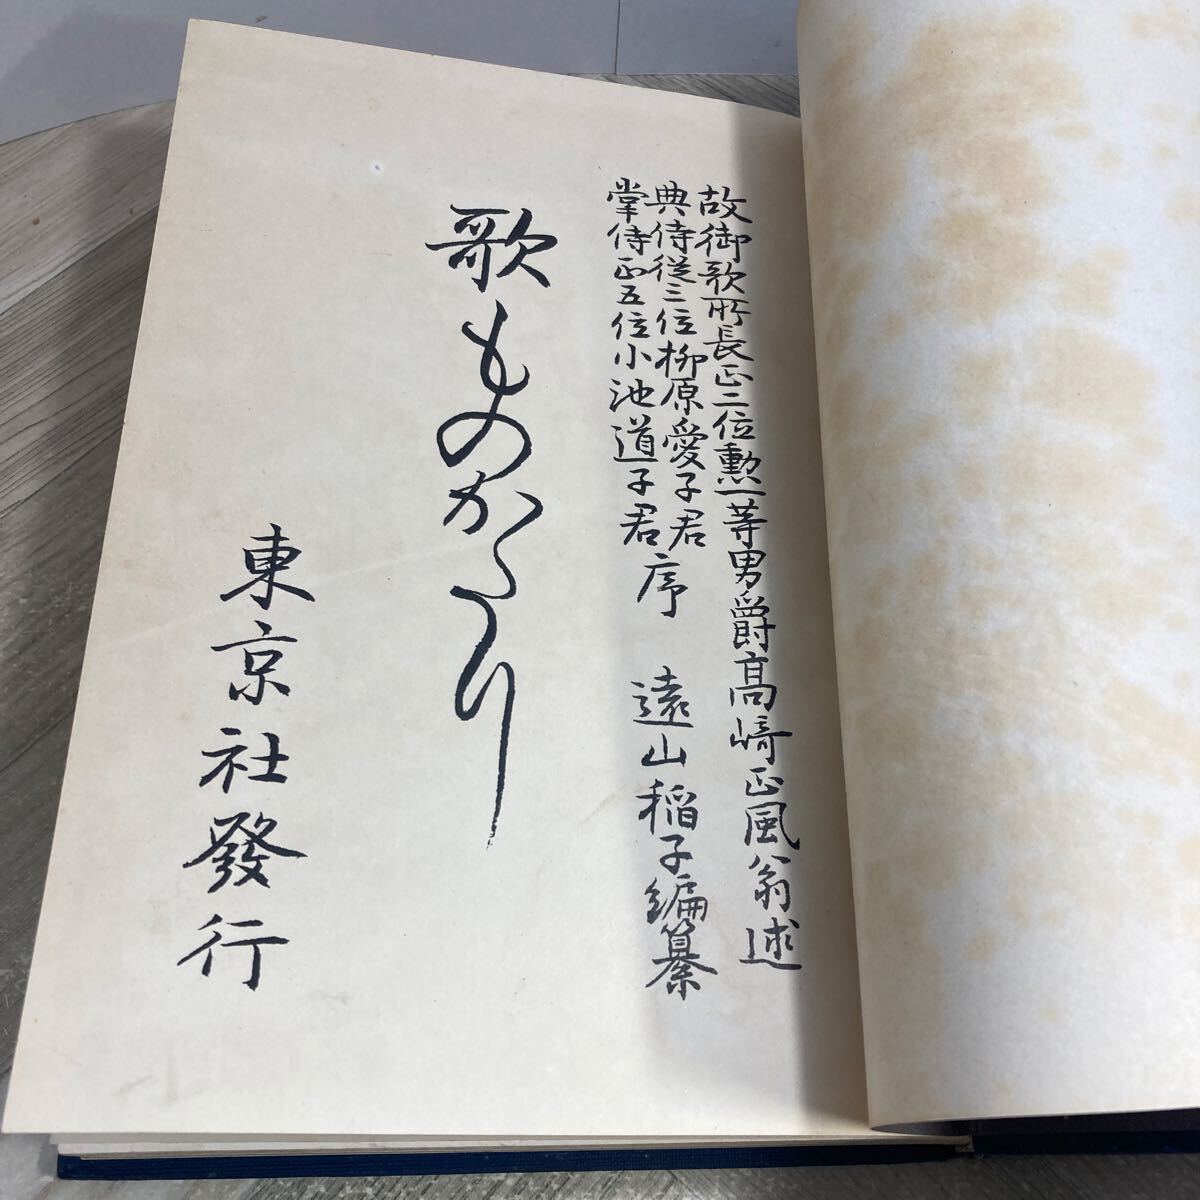 故御歌所長正二位勲一等男爵高崎正風翁述
典侍従三位柳原愛子君
掌侍正五位小池道子君
序
遠山稲子編纂
歌ものかたり
東京社發行